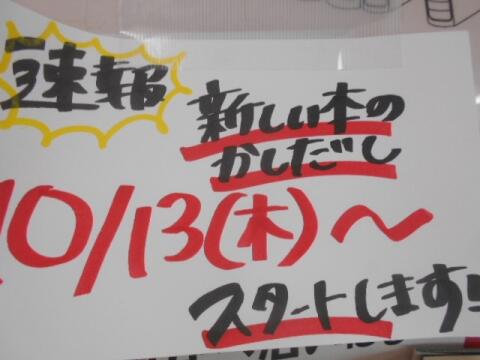 速報
新しい本の
かしだし
10/13(木)～
スタートします!!